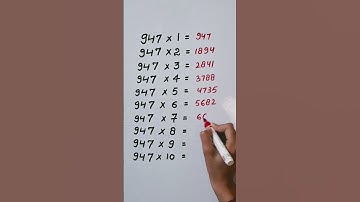 947 x 1 = 947
947 x 2 = 1894
947 x 3 = 2841
947 x 4 = 3788
947 x 5 = 4735
947 x 6 = 5682
947 x 7 = 66
947 x 8 =
947 x 9 =
947 x 10 =